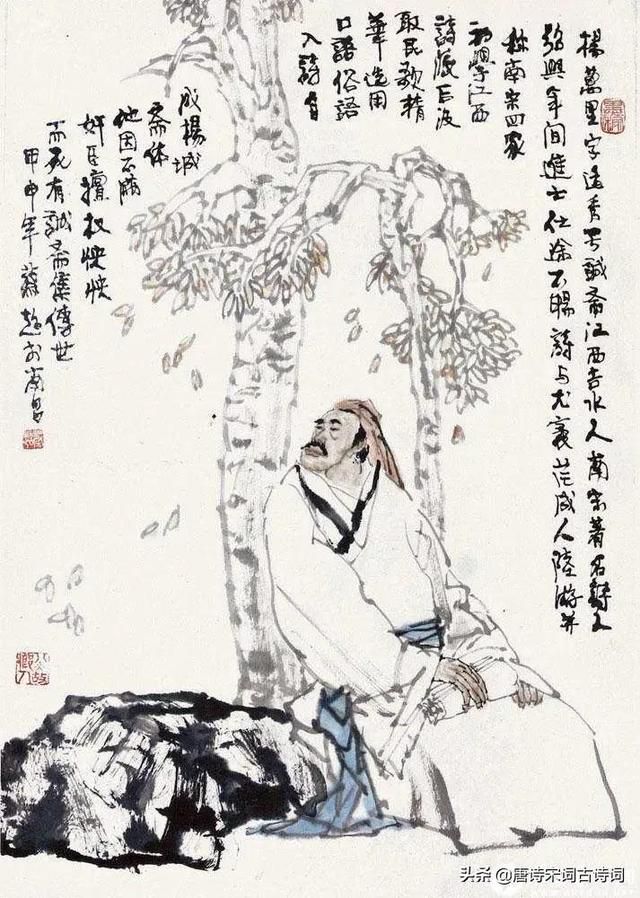 楊萬里字廷秀号誠斋江西吉水人南宋著名詩人
紹興年间進士仕途不暢詩与尤袤范成大陸游并
称南宋四家
初學江西
詩派后汲
取民歌精
華选用
口語俗語
入詩自
成楊城
斋体
他因不滿
奸臣擅权怏怏
而死有誠斋集傳世
甲申年於南昌
头条 @唐诗宋词古诗词